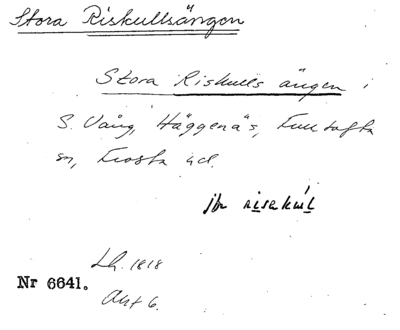 Stora Riskullsängen
Stora Riskulls ängen i
S. Vång, Häggenäs, Fulltofta
sn, Frosta hd.
jfr risakul
Lh. 1818
Nr 6641.
Akt 6.